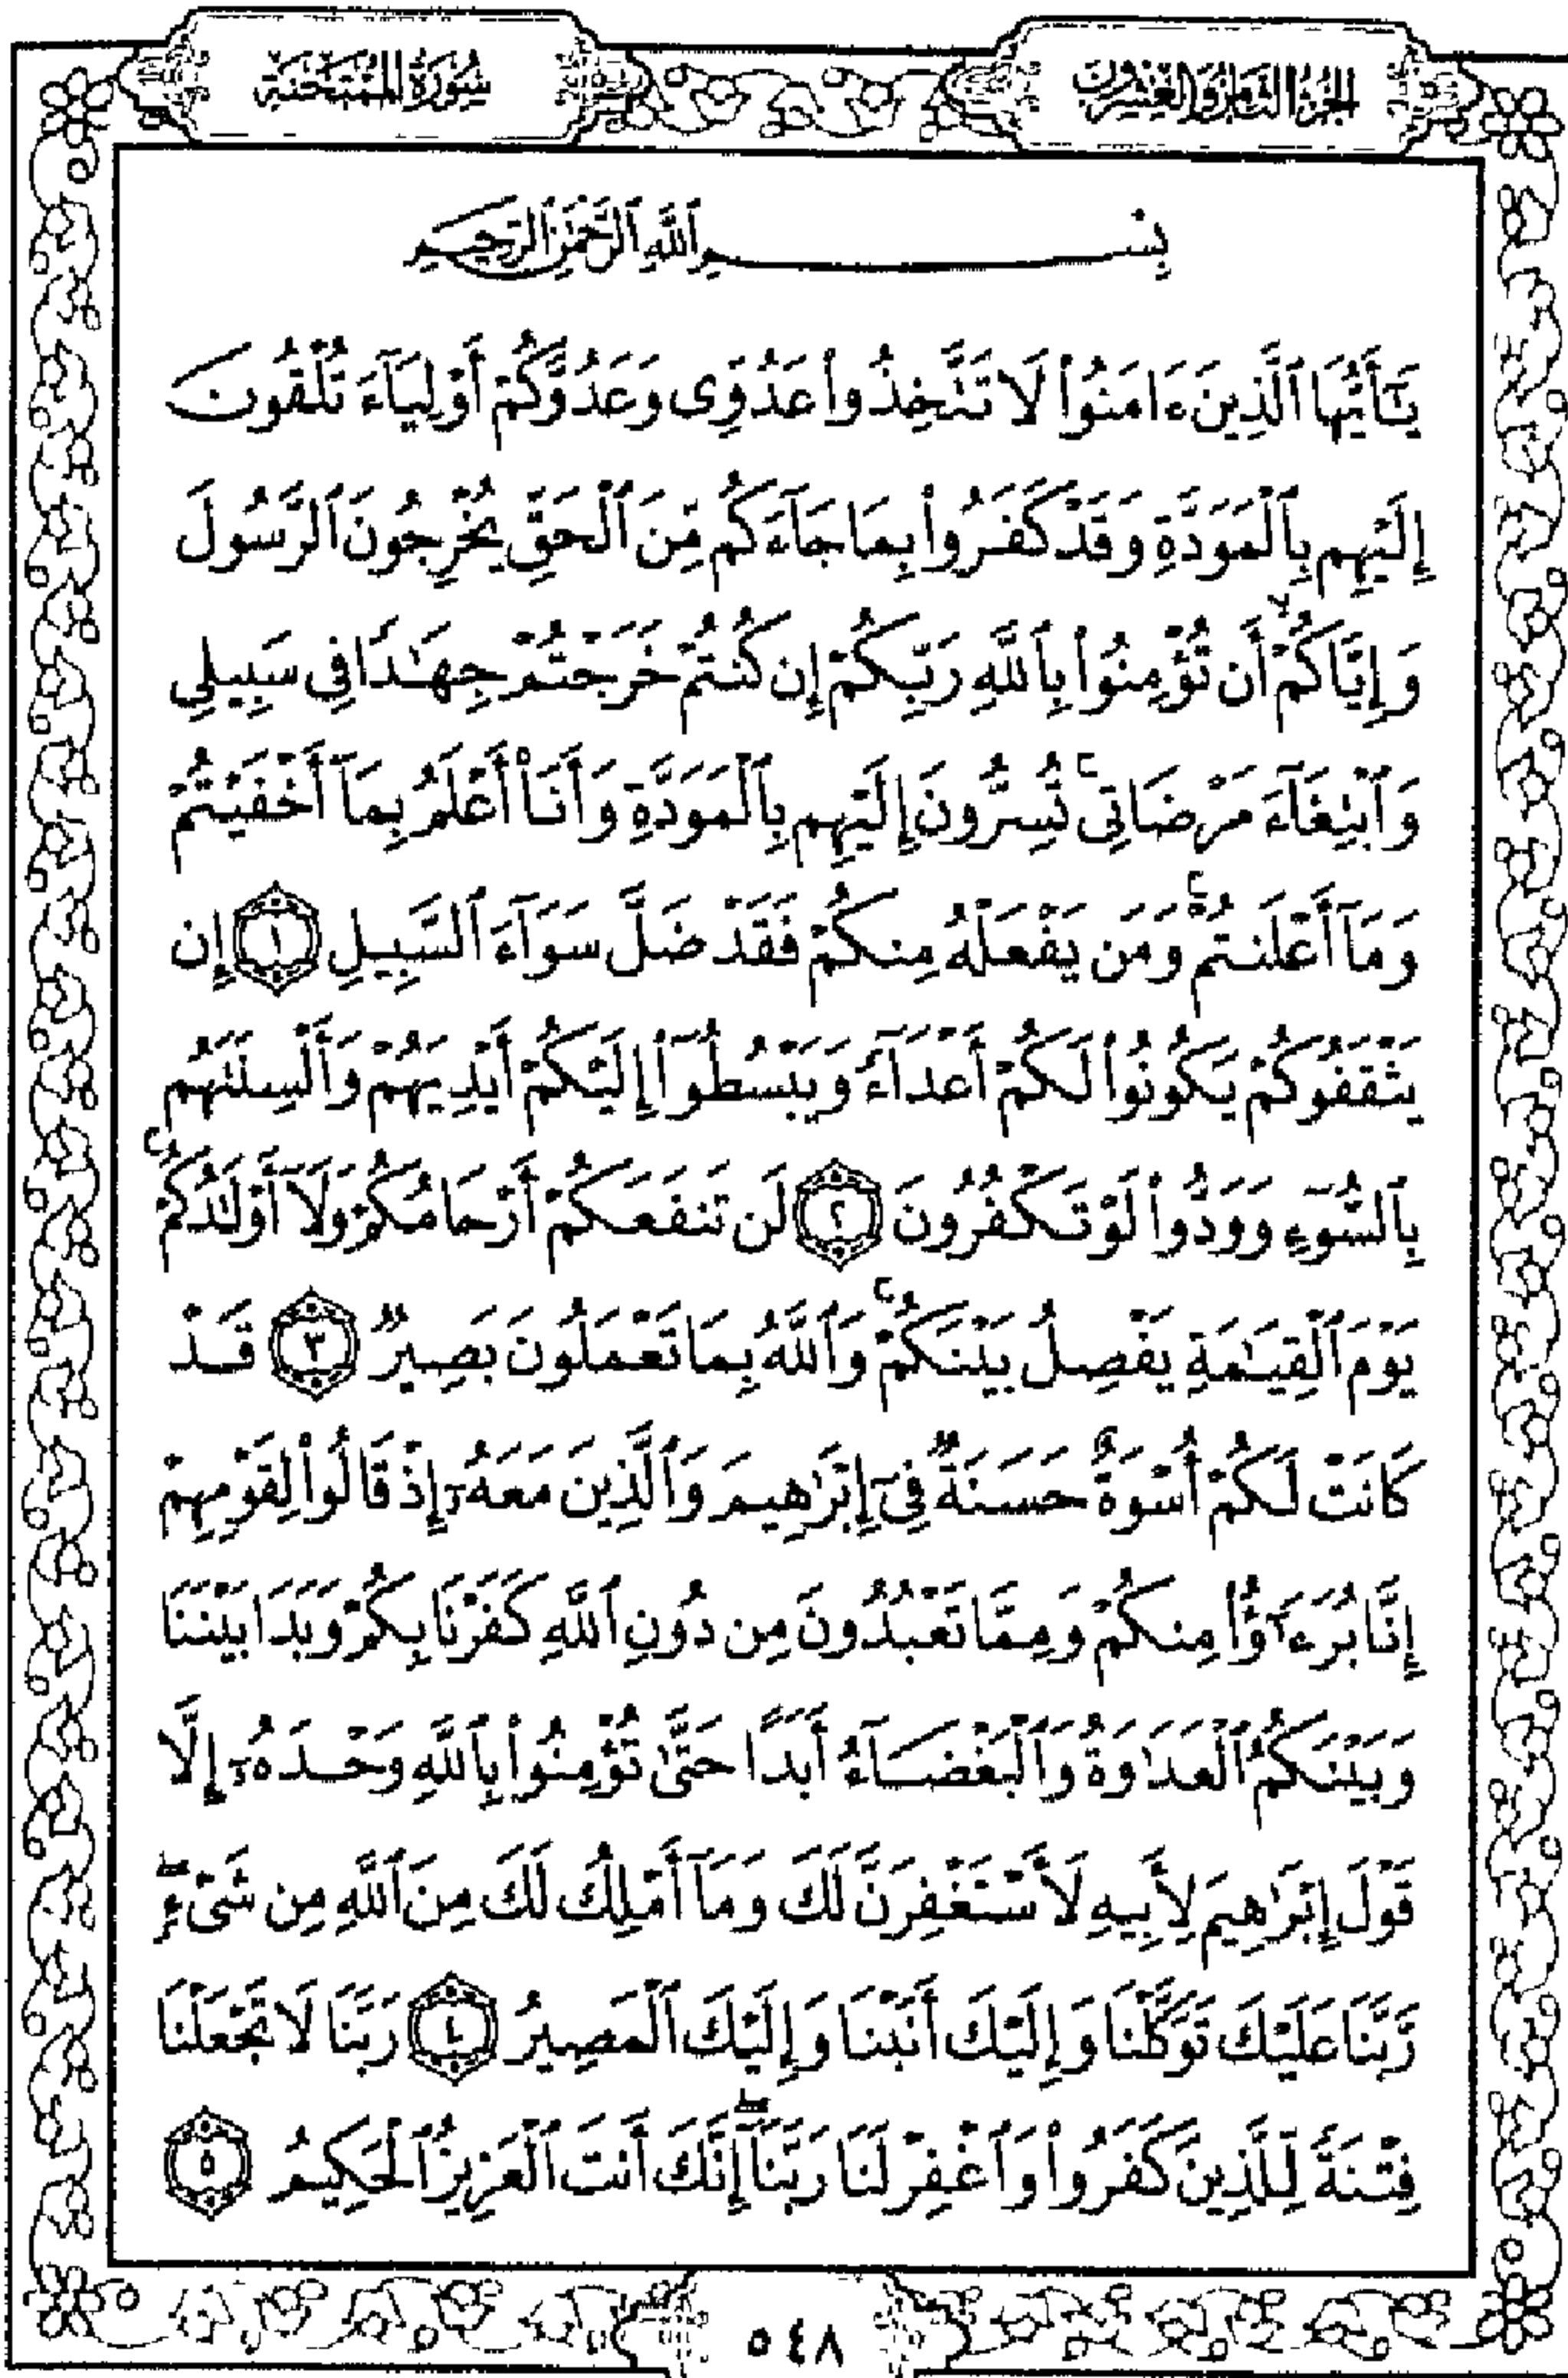 الجزء الثامن والعشرون
سورة الممتحنة
بِسْمِ ٱللَّهِ ٱلرَّحْمَٰنِ ٱلرَّحِيمِ
يَٰٓأَيُّهَا ٱلَّذِينَ ءَامَنُوا۟ لَا تَتَّخِذُوا۟ عَدُوِّى وَعَدُوَّكُمْ أَوْلِيَآءَ تُلْقُونَ
إِلَيْهِم بِٱلْمَوَدَّةِ وَقَدْ كَفَرُوا۟ بِمَا جَآءَكُم مِّنَ ٱلْحَقِّ يُخْرِجُونَ ٱلرَّسُولَ
وَإِيَّاكُمْ ۙ أَن تُؤْمِنُوا۟ بِٱللَّهِ رَبِّكُمْ إِن كُنتُمْ خَرَجْتُمْ جِهَٰدًا فِى سَبِيلِى
وَٱبْتِغَآءَ مَرْضَاتِى ۚ تُسِرُّونَ إِلَيْهِم بِٱلْمَوَدَّةِ وَأَنَا۠ أَعْلَمُ بِمَآ أَخْفَيْتُمْ
وَمَآ أَعْلَنتُمْ ۚ وَمَن يَفْعَلْهُ مِنكُمْ فَقَدْ ضَلَّ سَوَآءَ ٱلسَّبِيلِ ۝١ إِن
يَثْقَفُوكُمْ يَكُونُوا۟ لَكُمْ أَعْدَآءً وَيَبْسُطُوٓا۟ إِلَيْكُمْ أَيْدِيَهُمْ وَأَلْسِنَتَهُم
بِٱلسُّوٓءِ وَوَدُّوا۟ لَوْ تَكْفُرُونَ ۝٢ لَن تَنفَعَكُمْ أَرْحَامُكُمْ وَلَآ أَوْلَٰدُكُمْ ۚ
يَوْمَ ٱلْقِيَٰمَةِ يَفْصِلُ بَيْنَكُمْ ۚ وَٱللَّهُ بِمَا تَعْمَلُونَ بَصِيرٌ ۝٣ قَدْ
كَانَتْ لَكُمْ أُسْوَةٌ حَسَنَةٌ فِىٓ إِبْرَٰهِيمَ وَٱلَّذِينَ مَعَهُۥٓ إِذْ قَالُوا۟ لِقَوْمِهِمْ
إِنَّا بُرَءَٰٓؤُا۟ مِنكُمْ وَمِمَّا تَعْبُدُونَ مِن دُونِ ٱللَّهِ كَفَرْنَا بِكُمْ وَبَدَا بَيْنَنَا
وَبَيْنَكُمُ ٱلْعَدَٰوَةُ وَٱلْبَغْضَآءُ أَبَدًا حَتَّىٰ تُؤْمِنُوا۟ بِٱللَّهِ وَحْدَهُۥٓ إِلَّا
قَوْلَ إِبْرَٰهِيمَ لِأَبِيهِ لَأَسْتَغْفِرَنَّ لَكَ وَمَآ أَمْلِكُ لَكَ مِنَ ٱللَّهِ مِن شَىْءٍ ۖ
رَّبَّنَا عَلَيْكَ تَوَكَّلْنَا وَإِلَيْكَ أَنَبْنَا وَإِلَيْكَ ٱلْمَصِيرُ ۝٤ رَبَّنَا لَا تَجْعَلْنَا
فِتْنَةً لِّلَّذِينَ كَفَرُوا۟ وَٱغْفِرْ لَنَا رَبَّنَآ ۖ إِنَّكَ أَنتَ ٱلْعَزِيزُ ٱلْحَكِيمُ ۝٥
٥٤٨